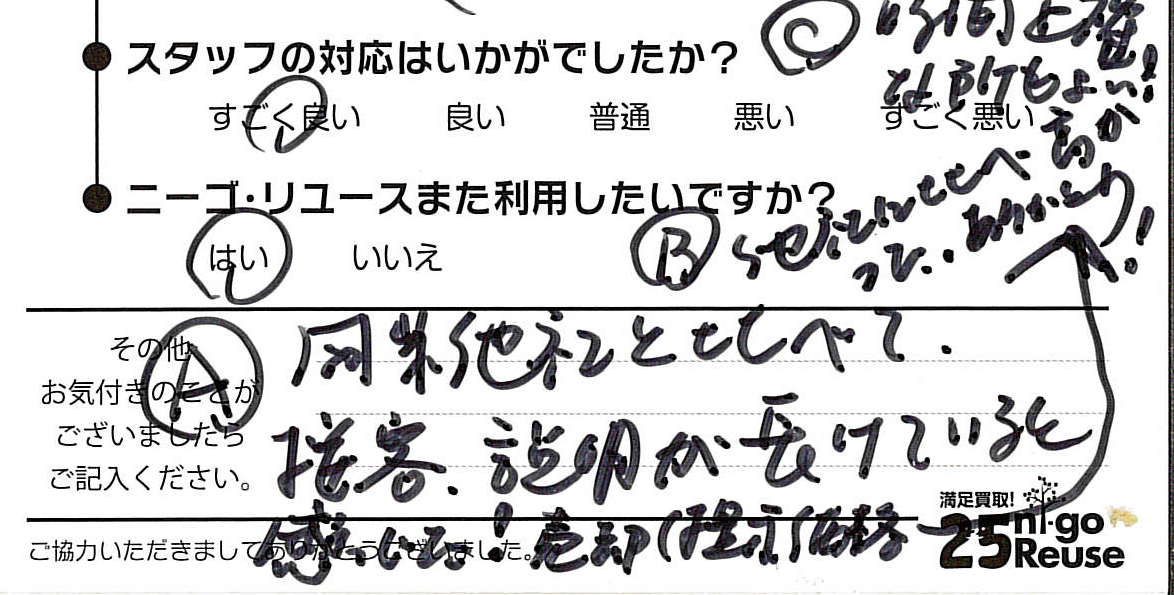 スタッフの対応はいかがでしたか?
すごく良い 良い 普通 悪い すごく悪い
ニーゴ・リユースまた利用したいですか?
はい いいえ
その他
お気付きのことが
ございましたら
ご記入ください。
Ⓐ 同業他社とくらべて、
接客、説明が長けていると
感じる!売却(提示)価格
Ⓑ 他社にくらべ高か
った、ありがとう!
Ⓒ 時間と確
な所もよい!
ご協力いただきましてありがとうございました。
満足買取!
25 ni-go
Reuse